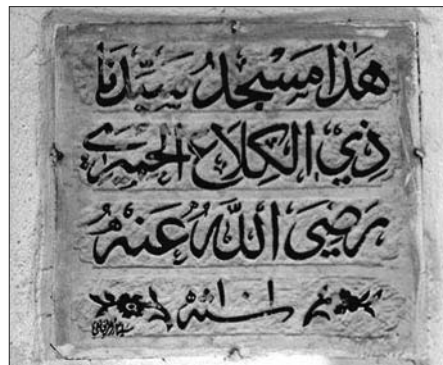 هَذَا مَسْجِدُ سَيِّدِنَا
ذِي الْكِلَاعِ الْحِمْيَرِي
رَضِيَ اللَّهُ عَنْهُ